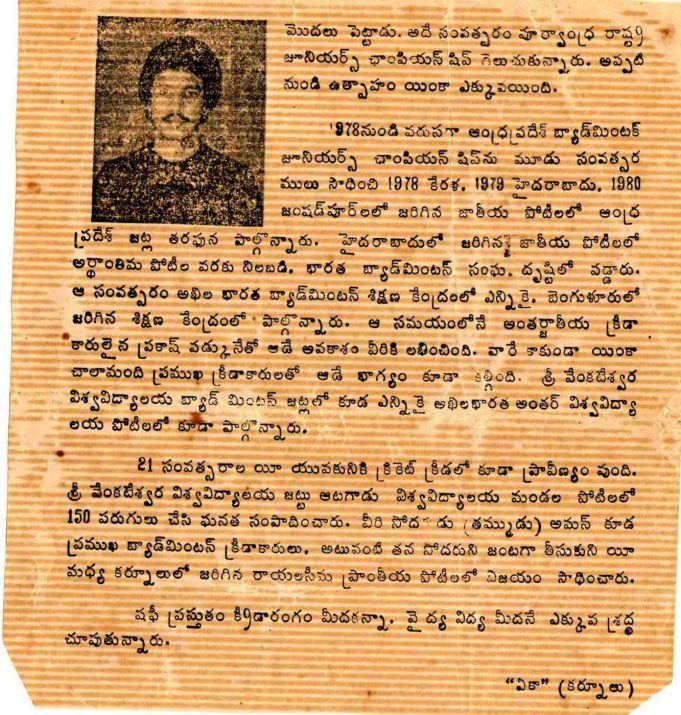 మొదలు పెట్టాడు. అదే సంవత్సరం పూర్వాంధ్ర రాష్ట్ర
జూనియర్స్ ఛాంపియన్ షిప్ గెలుచుకున్నారు. అప్పటి
నుండి ఉత్సాహం యింకా ఎక్కువయింది.
1978నుండి వరుసగా ఆంధ్రప్రదేశ్ బ్యాడ్మింటక్
జూనియర్స్ ఛాంపియన్ షిప్‌ను మూడు సంవత్సర
ములు సాధించి 1978 కేరళ, 1979 హైదరాబాదు, 1980
జంషడ్‌పూర్‌లలో జరిగిన జాతీయ పోటీలలో ఆంధ్ర
ప్రదేశ్ జట్ల తరఫున పాల్గొన్నారు. హైదరాబాదులో జరిగిన జాతీయ పోటీలలో
అర్థాంతిమ పోటీల వరకు నిలబడి. భారత బ్యాడ్మింటన్ సంఘ. దృష్టిలో పడ్డారు.
ఆ సంవత్సరం అఖిల భారత బ్యాడ్మింటన్ శిక్షణ కేంద్రంలో ఎన్నికై, బెంగుళూరులో
జరిగిన శిక్షణ కేంద్రంలో పాల్గొన్నారు. ఆ సమయంలోనే అంతర్జాతీయ క్రీడా
కారులైన ప్రకాష్ పడ్కునేతో ఆడే అవకాశం వీరికి లభించింది. వారే కాకుండా యింకా
చాలామంది ప్రముఖ క్రీడాకారులతో ఆడే భాగ్యం కూడా కల్గింది. శ్రీ వేంకటేశ్వర
విశ్వవిద్యాలయ బ్యాడ్ మింటన్ జట్లలో కూడ ఎన్నికై అఖిలభారత అంతర్ విశ్వవిద్యా
లయ పోటీలలో కూడా పాల్గొన్నారు.
21 సంవత్సరాల యీ యువకునికి క్రికెట్ క్రీడలో కూడా ప్రావీణ్యం వుంది.
శ్రీ వేంకటేశ్వర విశ్వవిద్యాలయ జట్టు ఆటగాడు విశ్వవిద్యాలయ మండల పోటీలలో
150 పరుగులు చేసి ఘనత సంపాదించారు. వీరి సోదరుడు (తమ్ముడు) అమన్ కూడ
ప్రముఖ బ్యాడ్మింటన్ క్రీడాకారులు. అటువంటి తన సోదరుని జంటగా తీసుకుని యీ
మధ్య కర్నూలులో జరిగిన రాయలసీమ ప్రాంతీయ పోటీలలో విజయం సాధించారు.
షఫీ ప్రస్తుతం క్రీడారంగం మీదకన్నా, వైద్య విద్య మీదనే ఎక్కువ శ్రద్ధ
చూపుతున్నారు.
“ఏకా” (కర్నూలు)